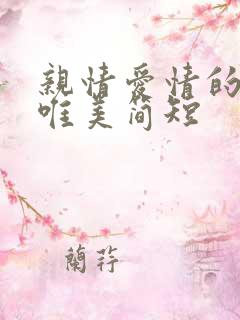 親情愛情的
唯美简短
蘭莊